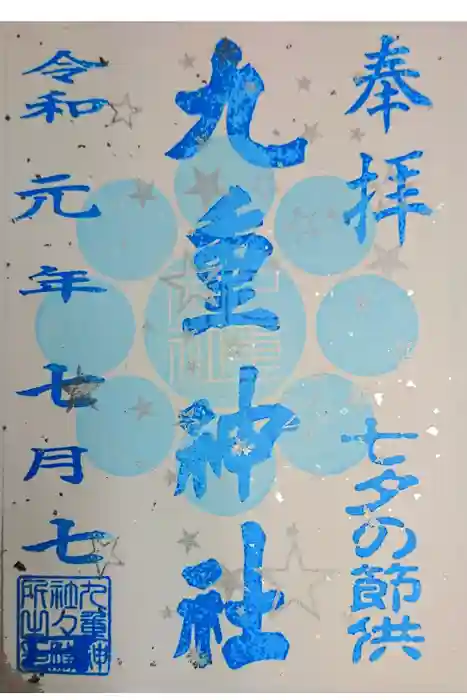 奉拝
七夕の節供
九重神社
令和元年七月七